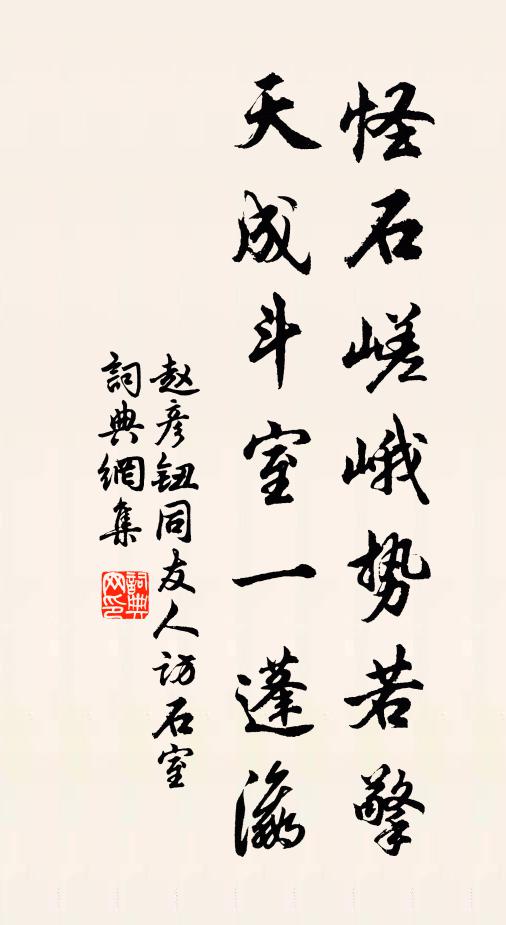 怪石嵯峨势若擎
天成斗室一蓬瀛
赵彦钮同友人访石室
詞典網集
詞典网印